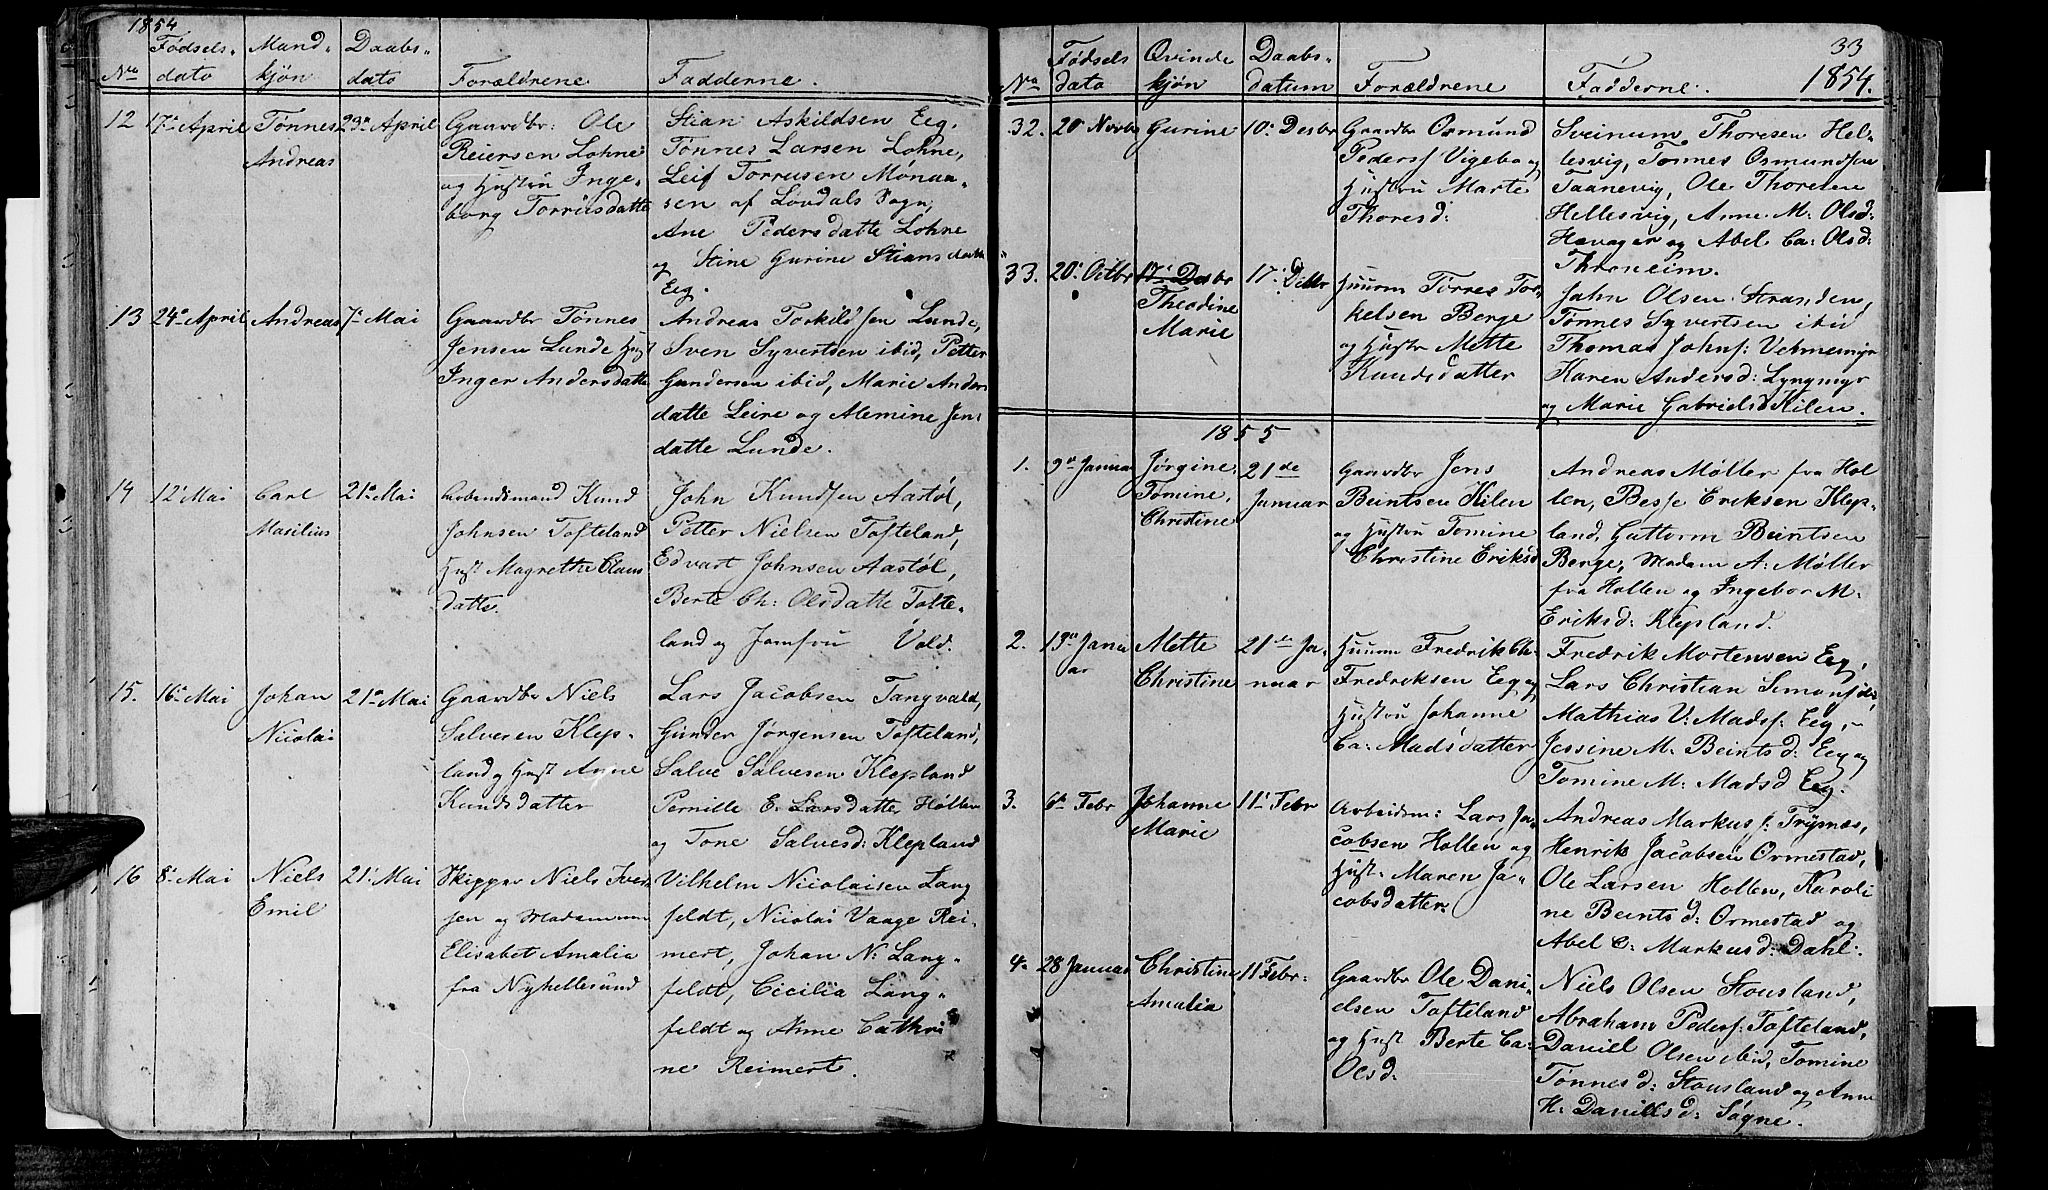 1854
No Fødsels- dato Mand- kjøn Daabs- dato Forældrene Fadderne.
12 17de April Tønnes Andreas 29de April
Gaardbr: Ole
Reiersen Lohne
og Hustru Inge-
borg Torrisdatte
Stian Askildsen Eeg,
Tønnes Larsen Lohne,
Leif Torrusen
sen af Sogn,
Ane Pedersdatte Lohne
og Stine Gurine Stiansdatte
Eeg.
13 24de April Andreas 7de Mai
Gaardbr Tønnes
Jensen Lunde Hust
Inger Andersdatte
Andreas Torkildsen Lunde,
Sven Syvertsen ibid, Petter
Gundersen ibid, Marie Anders
datte Leire og Alemine Jens
datte Lunde.
14 12' Mai Carl Masilius 21de Mai
Arbeidsmand Knud
Johnsen Tofteland
Hust Magrethe Claus
datte.
John Knudsen Aastøl,
Petter Nielsen Tofteland,
Edvart Johnsen Aastøl,
Berte Ch: Olsdatte Tofte-
land og Jomfru Vold.
15. 16de Mai Johan Nicolai 21de Mai
Gaardbr Niels
Salvesen Klep-
land og Hust Anne
Knudsdatter
Lars Jacobsen Tangvald,
Gunder Jørgensen Tofteland,
Salve Salvesen Klepland
Pernille E. Larsdatte Høllen
og Tone Salvesd: Klepland
16 8' Mai Niels Emil 21' Mai
Skipper Niels Iver
sen og Madamme
Elisabet Amalia
fra Nyhellesund
Vilhelm Nicolaisen Lang
feldt, Nicolai Vaage Rei-
mert, Johan N: Lang-
feldt, Cicilia Lang-
feldt og Anne Cathri
ne Reimert.
33
1854.
No Fødsels dato Qvinde kjøn Daabs- datum Forældrene Fadderne.
32. 20' Novbr Gurine 10' Desbr
Gaardbr Osmund
Peders: Vigebo og
Hustru Marte
Thoresd:
Sveinum Thoresen Hel-
lesvig, Tønnes Osmundsen
Taanevig, Ole Thoresen
Hellesvig, Anne M: Olsd:
Høvager og Abel Ca: Olsd:
Throneim.
33. 20' Octbr 17' Desbr Theodine Marie 17' Desbr
Huusm Tørres Tor-
kelsen Berge
og Hustr Mette
Knudsdatter
John Olsen Stranden,
Tønnes Syvertsen ibid
Thomas Johns: Vetmemyr
Karen Andersd: Lyngmyr
og Marie Gabrielsd Kilen.
1855
1. 9de Januar Jørgine Tomine Christine 21de Januar
Gaardbr Jens
Beintsen Kilen
og Hustru Tomine
Christine Eriksd
Andreas Møller fra Hol
len, Besse Eriksen Klep-
land, Guttorm Beintsen
Berge, Madam A: Møller
fra Hollen og Ingebor M:
Eriksd: Klepland.
2. 13de Janu ar Mette Christine 21de Ja- nuar
Huusm Fredrik Ch:
Fredriksen Eeg og
Hustru Johanne
Ca: Madsdatter
Fredrik Mortensen Eeg,
Lars Christian Simonsen:
Mathias V: Mads: Eeg,
Jessine M: Beintsd: Eeg og
Tomine M: Madsd Eeg.
3. 6te Febr Johanne Marie 11' Febr
Arbeidsm: Lars Ja-
cobsen Hollen og
Hust: Maren Ja-
cobsdatter:
Andreas Markuss: Trysnes,
Henrik Jacobsen Ormestad,
Ole Larsen Hollen, Karoli
ne Beintsd: Ormestad og
Abel C: Markusd: Dahl:
4. 28 Januar Christine Amalia 11 Febr:
Gaardbr Ole Dani-
elsen Tofteland
og Hust Berte Ca:
Olsd:
Niels Olsen Stousland,
Abraham Peders: Tofteland,
Daniel Olsen ibid, Tomine
Tønnesd: Stousland og Anne
K: Daniellsd: Søgne.